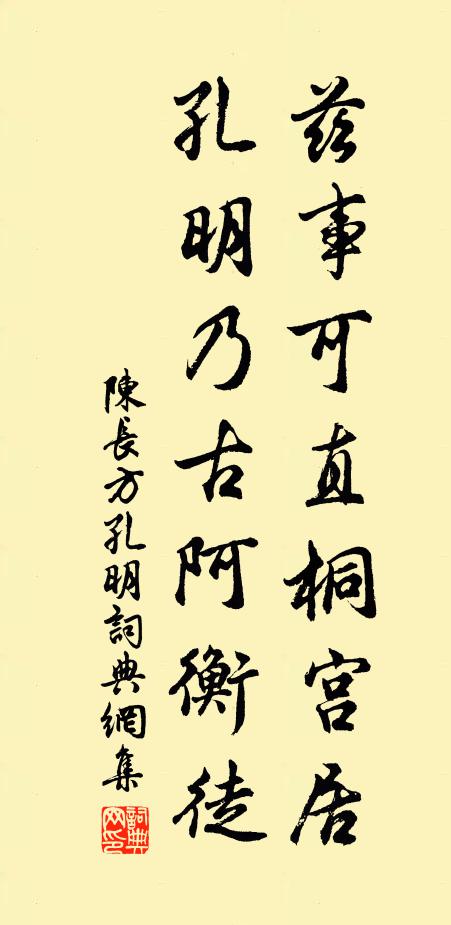 茲事可直桐宮居
孔明乃古阿衡徒
陳長方孔明詞典網集
詞典網印